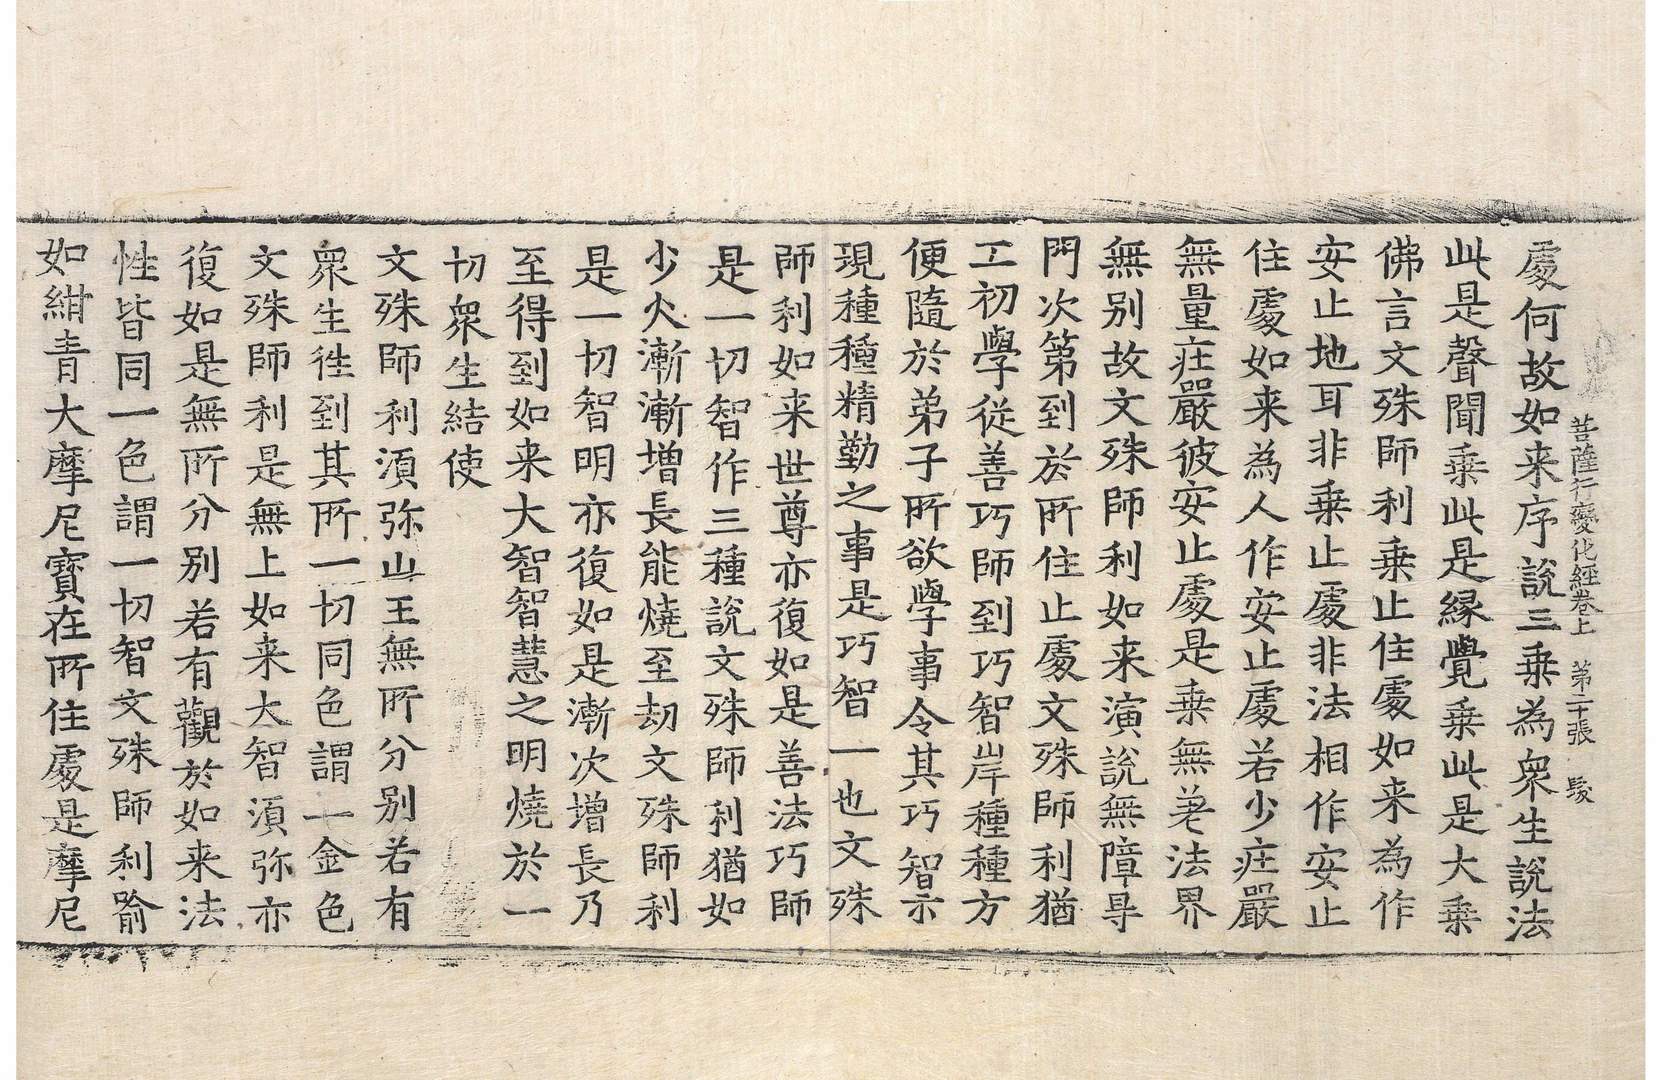 菩薩行變化經卷上　第二十張　髮
處何故如来序說三乗為衆生說法
此是聲聞乗此是縁覺乗此是大乗
佛言文殊師利乗止住處如来為作
安止地耳非乗止處非法相作安止
住處如来為人作安止處若少庄嚴
無量庄嚴彼安止處是乗無差法界
無别故文殊師利如来演說無障㝵
門次第到於所住止處文殊師利猶
工初學従善巧師到巧智岸種種方
便隨於弟子所欲學事令其巧智示
現種種精勤之事是巧智一也文殊
師利如来世尊亦復如是善法巧師
是一切智作三種說文殊師利猶如
少火漸漸增長能燒至劫文殊師利
是一切智明亦復如是漸次增長乃
至得到如来大智智慧之明燒於一
切衆生結使
文殊師利湏弥山王無所分别若有
衆生徃到其所一切同色謂一金色
文殊師利是無上如来大智湏弥亦
復如是無所分别若有觀於如来法
性皆同一色謂一切智文殊師利喻
如紺青大摩尼寳在所住處是摩尼